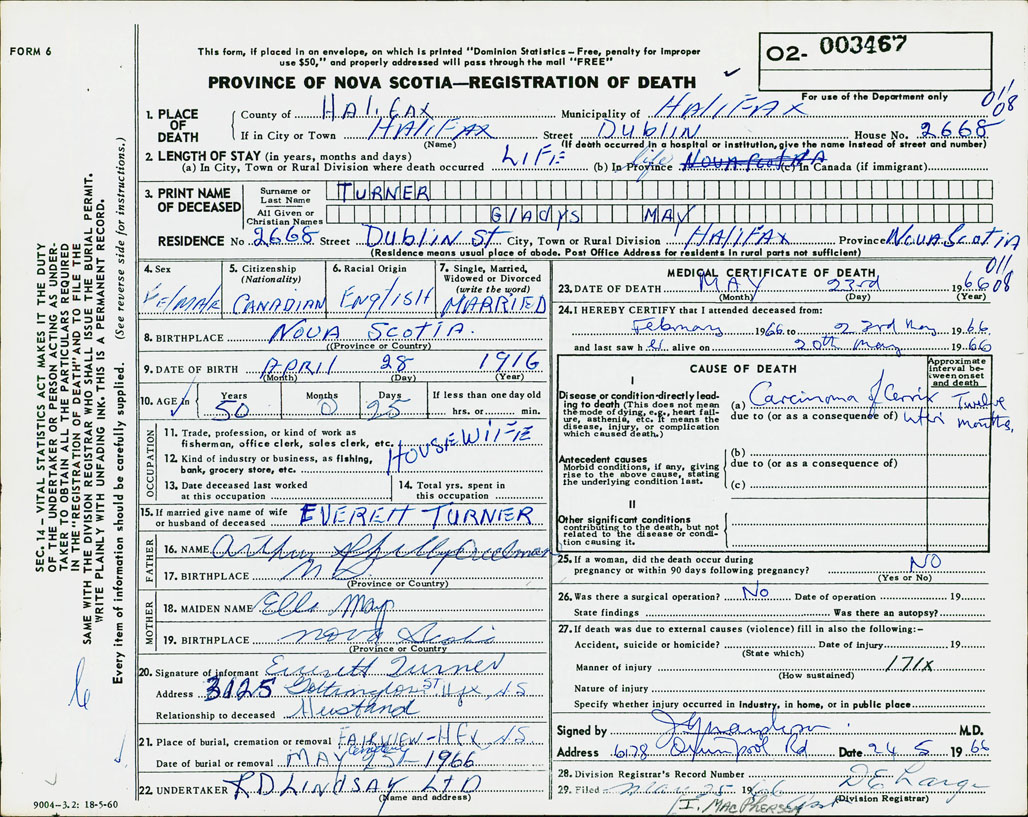 FORM 6
This form, if placed in an envelope, on which is printed "Dominion Statistics – Free, penalty for improper
use $50," and properly addressed will pass through the mail "FREE"
PROVINCE OF NOVA SCOTIA—REGISTRATION OF DEATH
02- 003467
For use of the Department only
011
08
1. PLACE OF DEATH
County of HALIFAX Municipality of HALIFAX
If in City or Town HALIFAX Street DUBLIN House No. 2668
(Name) (If death occurred in a hospital or institution, give the name instead of street and number)
2. LENGTH OF STAY (in years, months and days)
(a) In City, Town or Rural Division where death occurred LIFE (b) In Province life NOVA SCOTIA (c) In Canada (if immigrant)
3. PRINT NAME OF DECEASED
Surname or Last Name TURNER
All Given or Christian Names GlAdys MAY
RESIDENCE No 2668 Street DUBLIN ST City, Town or Rural Division HALIFAX Province NOVA SCOTIA
(Residence means usual place of abode. Post Office Address for residents in rural parts not sufficient)
4. Sex FeMAlE
5. Citizenship (Nationality) CANADIAN
6. Racial Origin ENglISH
7. Single, Married, Widowed or Divorced (write the word) MARRIED
8. BIRTHPLACE NOVA SCOTIA.
(Province or Country)
9. DATE OF BIRTH APRIL 28 1916
(Month) (Day) (Year)
10. AGE in Years 50 Months 0 Days 25 If less than one day old hrs. or min.
OCCUPATION
11. Trade, profession, or kind of work as fisherman, office clerk, sales clerk, etc. HOUSEWIFE
12. Kind of industry or business, as fishing, bank, grocery store, etc.
13. Date deceased last worked at this occupation
14. Total yrs. spent in this occupation
15. If married give name of wife or husband of deceased EVERETT TURNER
FATHER
16. NAME Arthur
17. BIRTHPLACE N S
(Province or Country)
MOTHER
18. MAIDEN NAME Ella May
19. BIRTHPLACE Nova Scotia
(Province or Country)
20. Signature of informant Everett Turner
Address 3125 Gottingen ST Hfx, NS
Relationship to deceased Husband
21. Place of burial, cremation or removal FAIRVIEW - HFX NS
Cemetery
Date of burial or removal MAY 25 1966
22. UNDERTAKER R D LINDSAY LTD
(Name and address)
9004-3.2: 18-5-60
MEDICAL CERTIFICATE OF DEATH
011
08
23. DATE OF DEATH MAY 23rd 1966
(Month) (Day) (Year)
24. I HEREBY CERTIFY that I attended deceased from:
February 1966 to 23rd May 1966
and last saw her alive on 20th May 1966
CAUSE OF DEATH
Approximate interval between onset and death
I
Disease or condition directly leading to death (This does not mean the mode of dying, e.g., heart failure, asthenia, etc. It means the disease, injury, or complication which caused death.)
(a) Carcinoma of Cervix Uteri Twelve months,
due to (or as a consequence of)
Antecedent causes
Morbid conditions, if any, giving rise to the above cause, stating the underlying condition last.
(b)
due to (or as a consequence of)
(c)
II
Other significant conditions
contributing to the death, but not related to the disease or condition causing it.
25. If a woman, did the death occur during pregnancy or within 90 days following pregnancy? NO
(Yes or No)
26. Was there a surgical operation? No Date of operation 19
State findings Was there an autopsy?
27. If death was due to external causes (violence) fill in also the following:–
Accident, suicide or homicide? Date of injury 19
(State which)
Manner of injury 171x
(How sustained)
Nature of injury
Specify whether injury occurred in Industry, in home, or in public place
Signed by M.D.
Address 6178 Rd Date 24 5 1966
28. Division Registrar's Record Number
29. Filed May 25 1966 D E Large
I. MACPHERSON (Division Registrar)
SEC. 14 – VITAL STATISTICS ACT MAKES IT THE DUTY
OF THE UNDERTAKER OR PERSON ACTING AS UNDER-
TAKER TO OBTAIN ALL THE PARTICULARS REQUIRED
IN THE "REGISTRATION OF DEATH" AND TO FILE THE
SAME WITH THE DIVISION REGISTRAR WHO SHALL ISSUE THE BURIAL PERMIT.
WRITE PLAINLY WITH UNFADING INK. THIS IS A PERMANENT RECORD.
Every item of information should be carefully supplied. (See reverse side for instructions.)